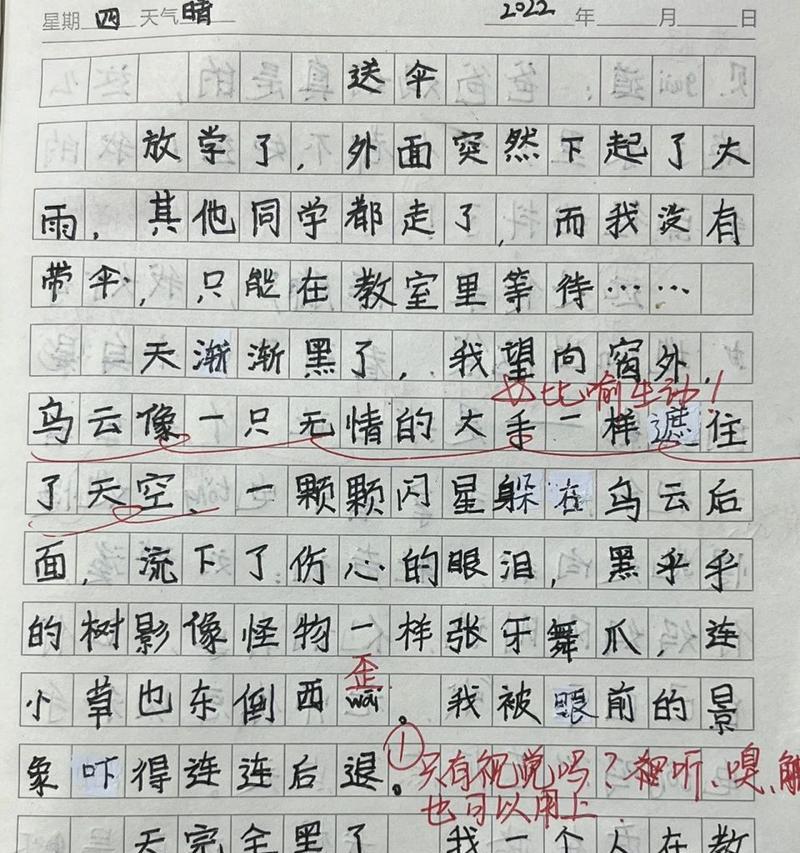 星期 四 天气 晴 2022 年 月 日
送伞
放学了，外面突然下起了大
雨，其他同学都走了，而我没有
带伞，只能在教室里等待……
天渐渐黑了，我望向窗外，
比喻生动！
乌云像一只无情的大手一样遮住
了天空，一颗颗闪星躲在乌云后
面，流下了伤心的眼泪，黑乎乎
的树影像怪物一样张牙舞爪，连
歪
小草也东倒西wāi。我被眼前的景
象吓得连连后退。
①只有视觉吗？把听、嗅、触
也可以用上
天完全黑了 我一个人在教